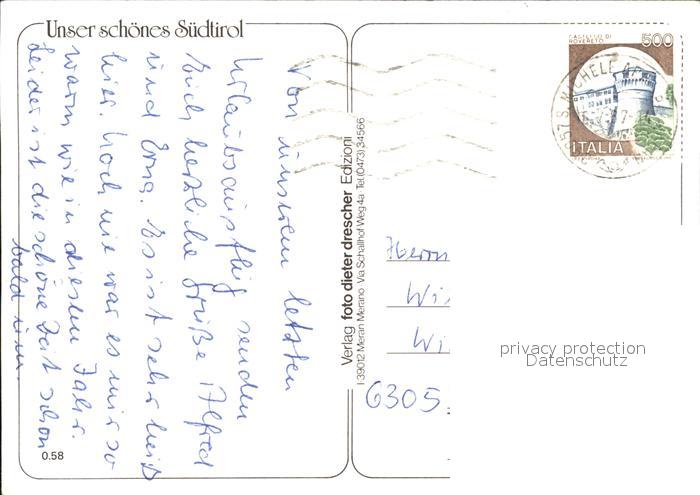 Unser schönes Südtirol
Von unserem letzten
Urlaubsausflug senden
Euch herzliche Grüße Alfred
und Erna. Es ist sehr heiß
hier. Noch nie war es mir so
warm wie in diesem Jahr.
Leider ist die schöne Zeit schon
bald um.
0.58
Verlag foto dieter drescher Edizioni
I-39012 Meran Merano Via Schallhof Weg 4a Tel. (0473) 34566
CASTELLO DI
ROVERETO
500
ITALIA
S. MICHELE
Herrn
Wi
Wi
6305
privacy protection
Datenschutz